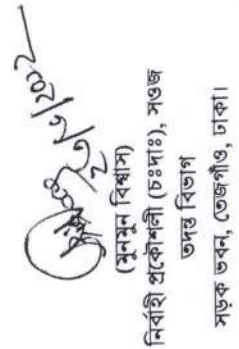 (মুনমুন বিশ্বাস)
নির্বাহী প্রকৌশলী (চঃদাঃ), সওজ
তদন্ত বিভাগ
সড়ক ভবন, তেজগাঁও, ঢাকা।